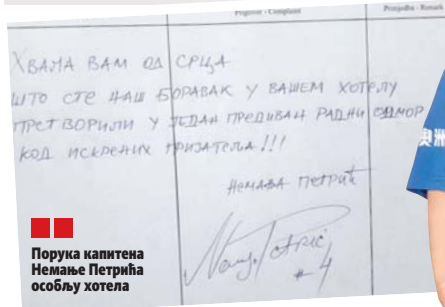 Prigovor - Complaint
Primjedba - Remark
ХВАЛА ВАМ ОД СРЦА
ШТО СТЕ НАШ БОРАВАК У ВАШЕМ ХОТЕЛУ
ПРЕТВОРИЛИ У ЈЕДАН ПРЕДИВАН РАДНИ ОДМОР
КОД ИСКРЕНИХ ПРИЈАТЕЉА!!!
НЕМАЊА ПЕТРИЋ
#4
Порука капитена
Немање Петрића
особљу хотела
澳洲